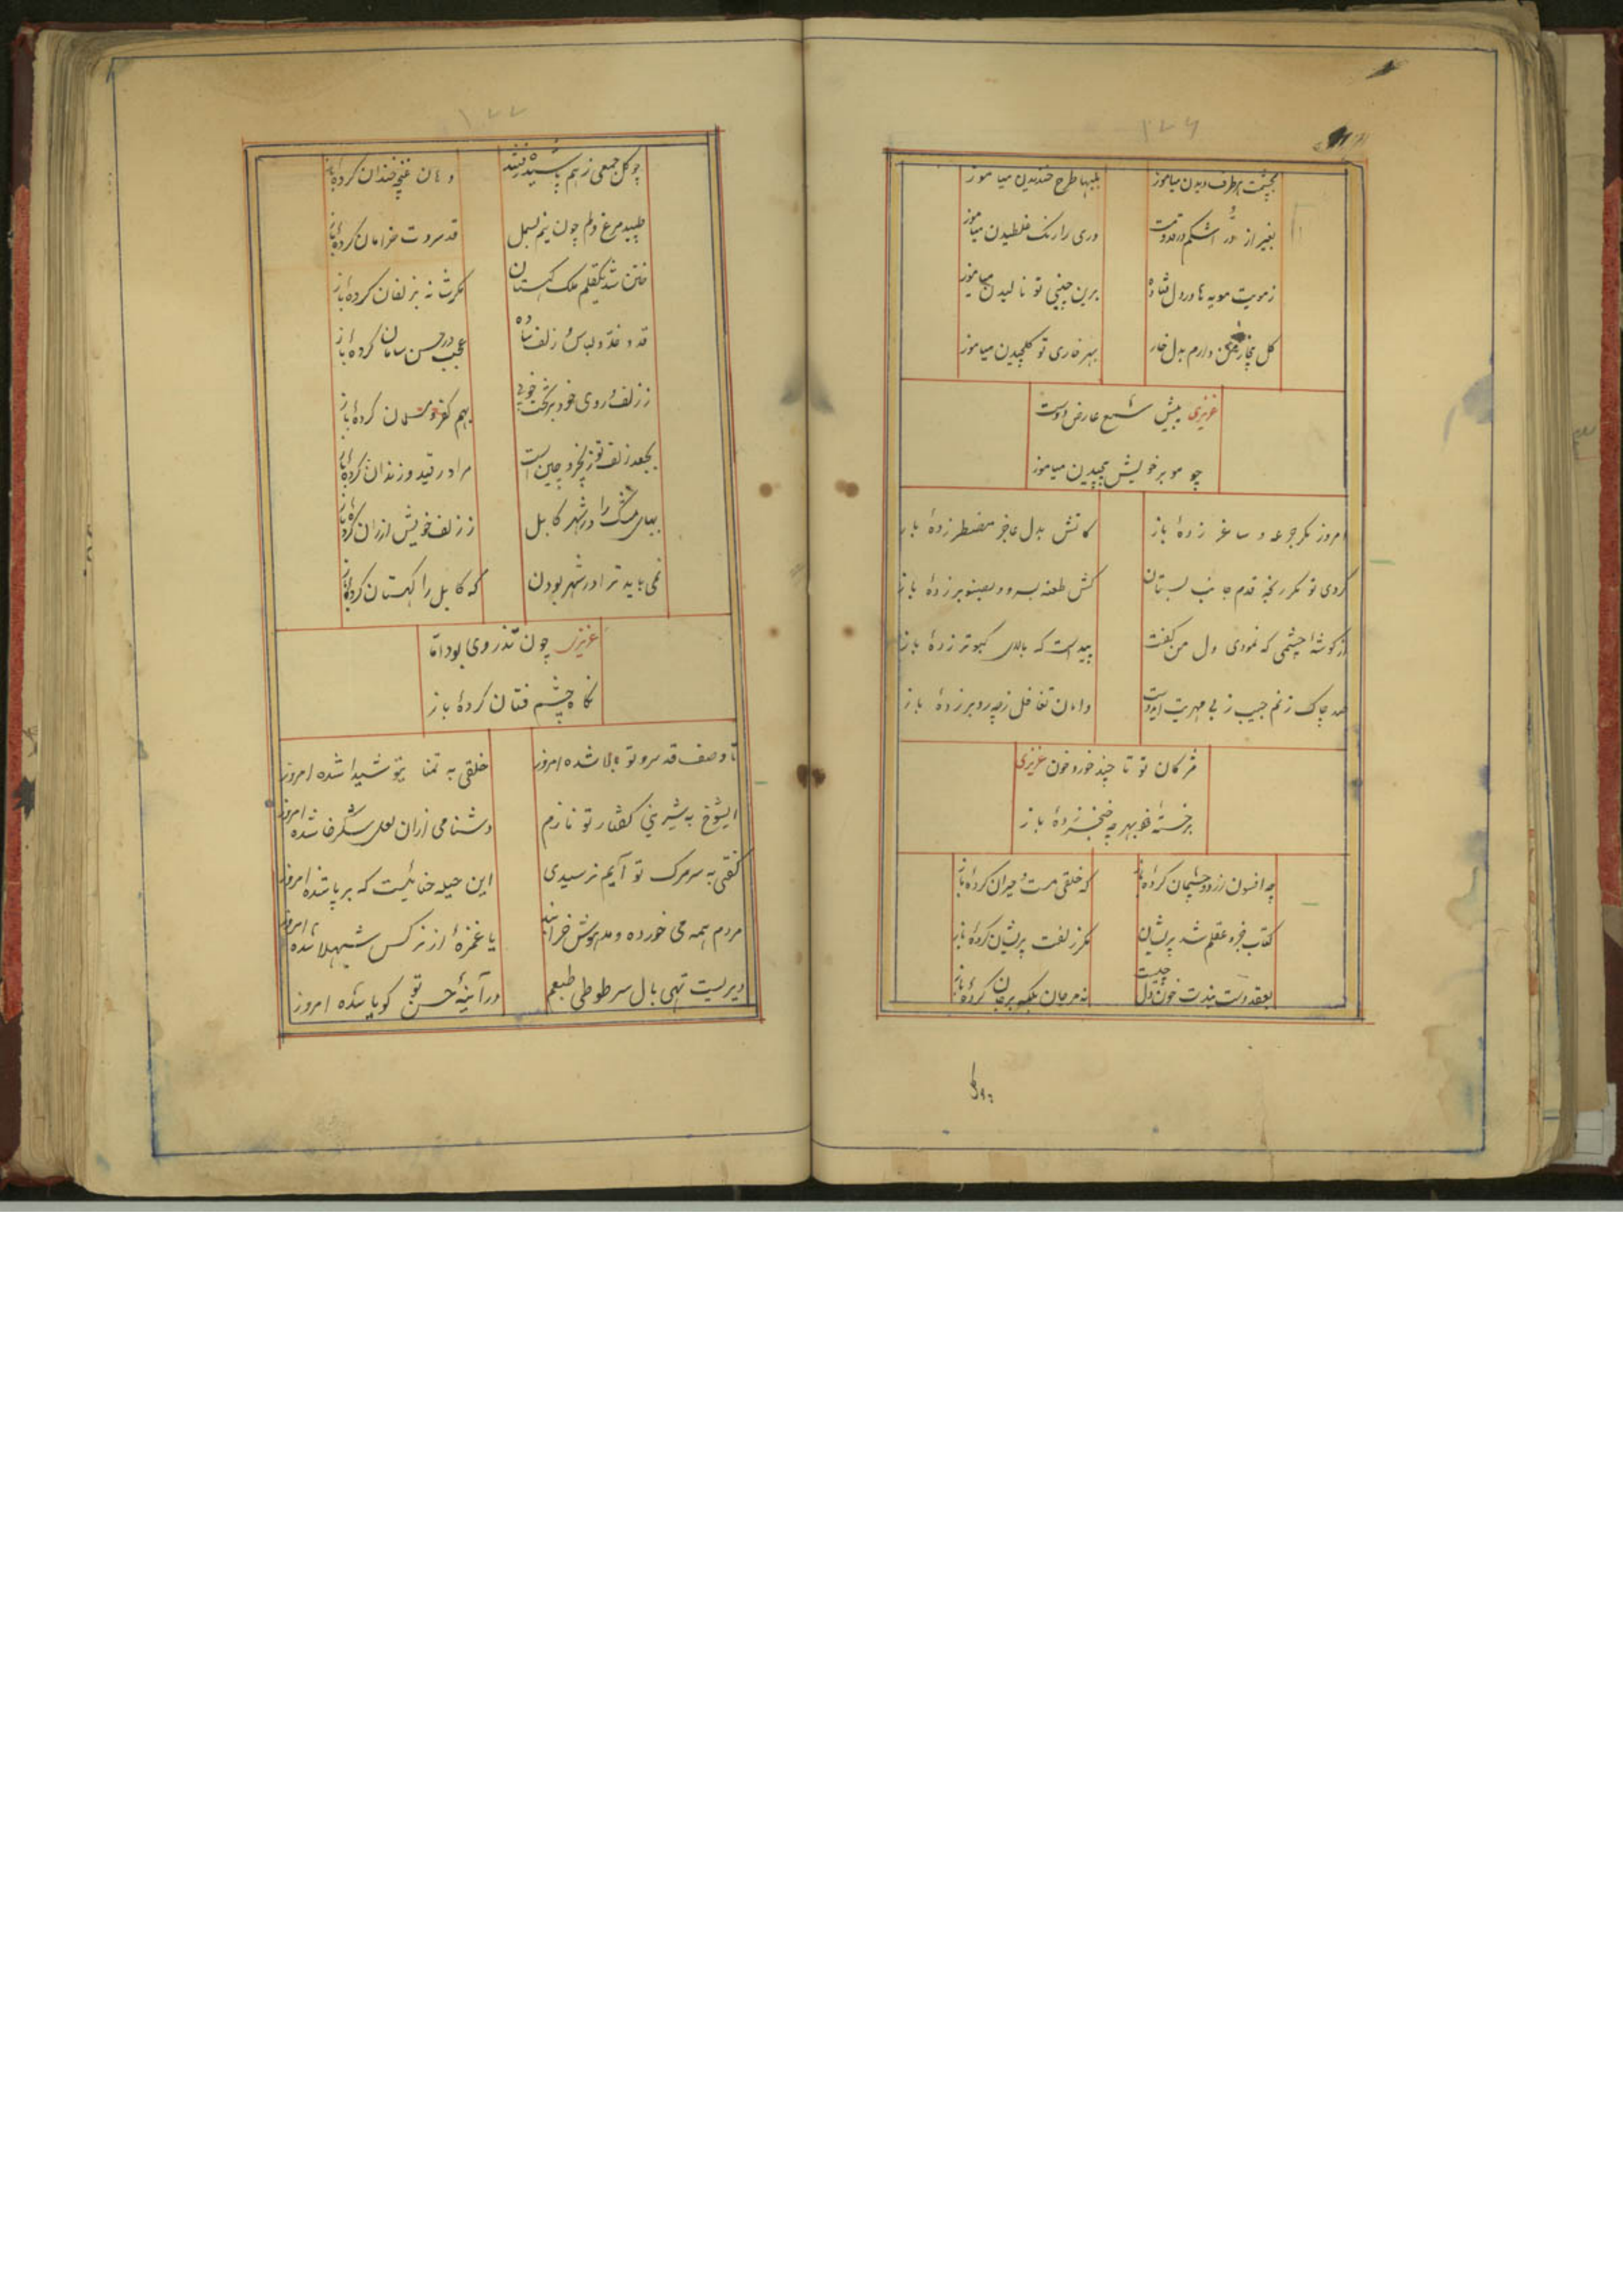 ۱۷۶
بچشمت هر طرف دیدن میاموز
بلبها طرح خندیدن میاموز
بغیر از در اشکم در قدومت
دری را رنک غلطیدن میاموز
زمویت مویه ها در دل فتاده
برین چینی تو نالیدن میاموز
کل بیخار من دارم بدل خار
بهر خاری تو کلچیدن میاموز
عزیزی پیش شمع عارض دوست
چو مو بر خویش پیچیدن میاموز
امروز مکر جرعه و ساغر زدهٔ باز
کاتش بدل عاجز مضطر زدهٔ باز
کردی تو مکر رنجه قدم جانب بستان
کش طعنه بسرو و بصنوبر زدهٔ باز
از کوشهٔ چشمی که نمودی دل من کفت
پیداست که بالای کبوتر زدهٔ باز
صد چاک زنم جیب ز بی مهریت ایدوست
دامان تغافل زچه رو بر زدهٔ باز
مژکان تو تا چند خورد خون عزیزی
بر خستهٔ خو بهر چه خنجر زدهٔ باز
چه افسون زدو چشمان کردهٔ باز
که خلقی مست و حیران کردهٔ باز
کتاب خرد عقلم شد پریشان
مکر زلفت پریشان کردهٔ باز
بعقد دست بندت خون دل چیست
نه مرجان بلکه برجان کردهٔ باز
۱۷۷
چو کل جمعی زهم پاشیده رفتند
دهان غنچه خندان کردهٔ باز
طپید مرغ دلم چون نیم بسمل
قد سروت خرامان کردهٔ باز
ختن شد یکقلم ملک کهستان
مکر شانه بزلفان کردهٔ باز
قد و خد و لباس و زلف سیاه
عجب در حسن سامان کردهٔ باز
ز زلف و روی خود بر تخت خوبی
بهم کفر و مسلمان کردهٔ باز
بجعد زلف تو زنجیر و چین است
مرا در قید و زندان کردهٔ باز
بهای مشک را در شهر کابل
ز زلف خویش ارزان کردهٔ باز
نمی باید ترا در شهر بودن
که کابل را کهستان کردهٔ باز
عزیزی چون تذروی بود اما
نکاه چشم فتان کردهٔ باز
تا وصف قد سرو تو بالا شده امروز
خلقی به تمنا بتو شیدا شده امروز
ایشوخ به شیرینی کفتار تو نازم
دشنامی ازان لعل شکرخا شده امروز
کفتی به سر مرک تو آیم نرسیدی
این حیله حنائیست که بر پا شده امروز
مردم همه می خورده و مدهوش خرابند
یا غمزهٔ از نرکس شهلا شده امروز
دیریست تهی بال سر طوطی طبعم
در آینهٔ حسن تو کویا شده امروز